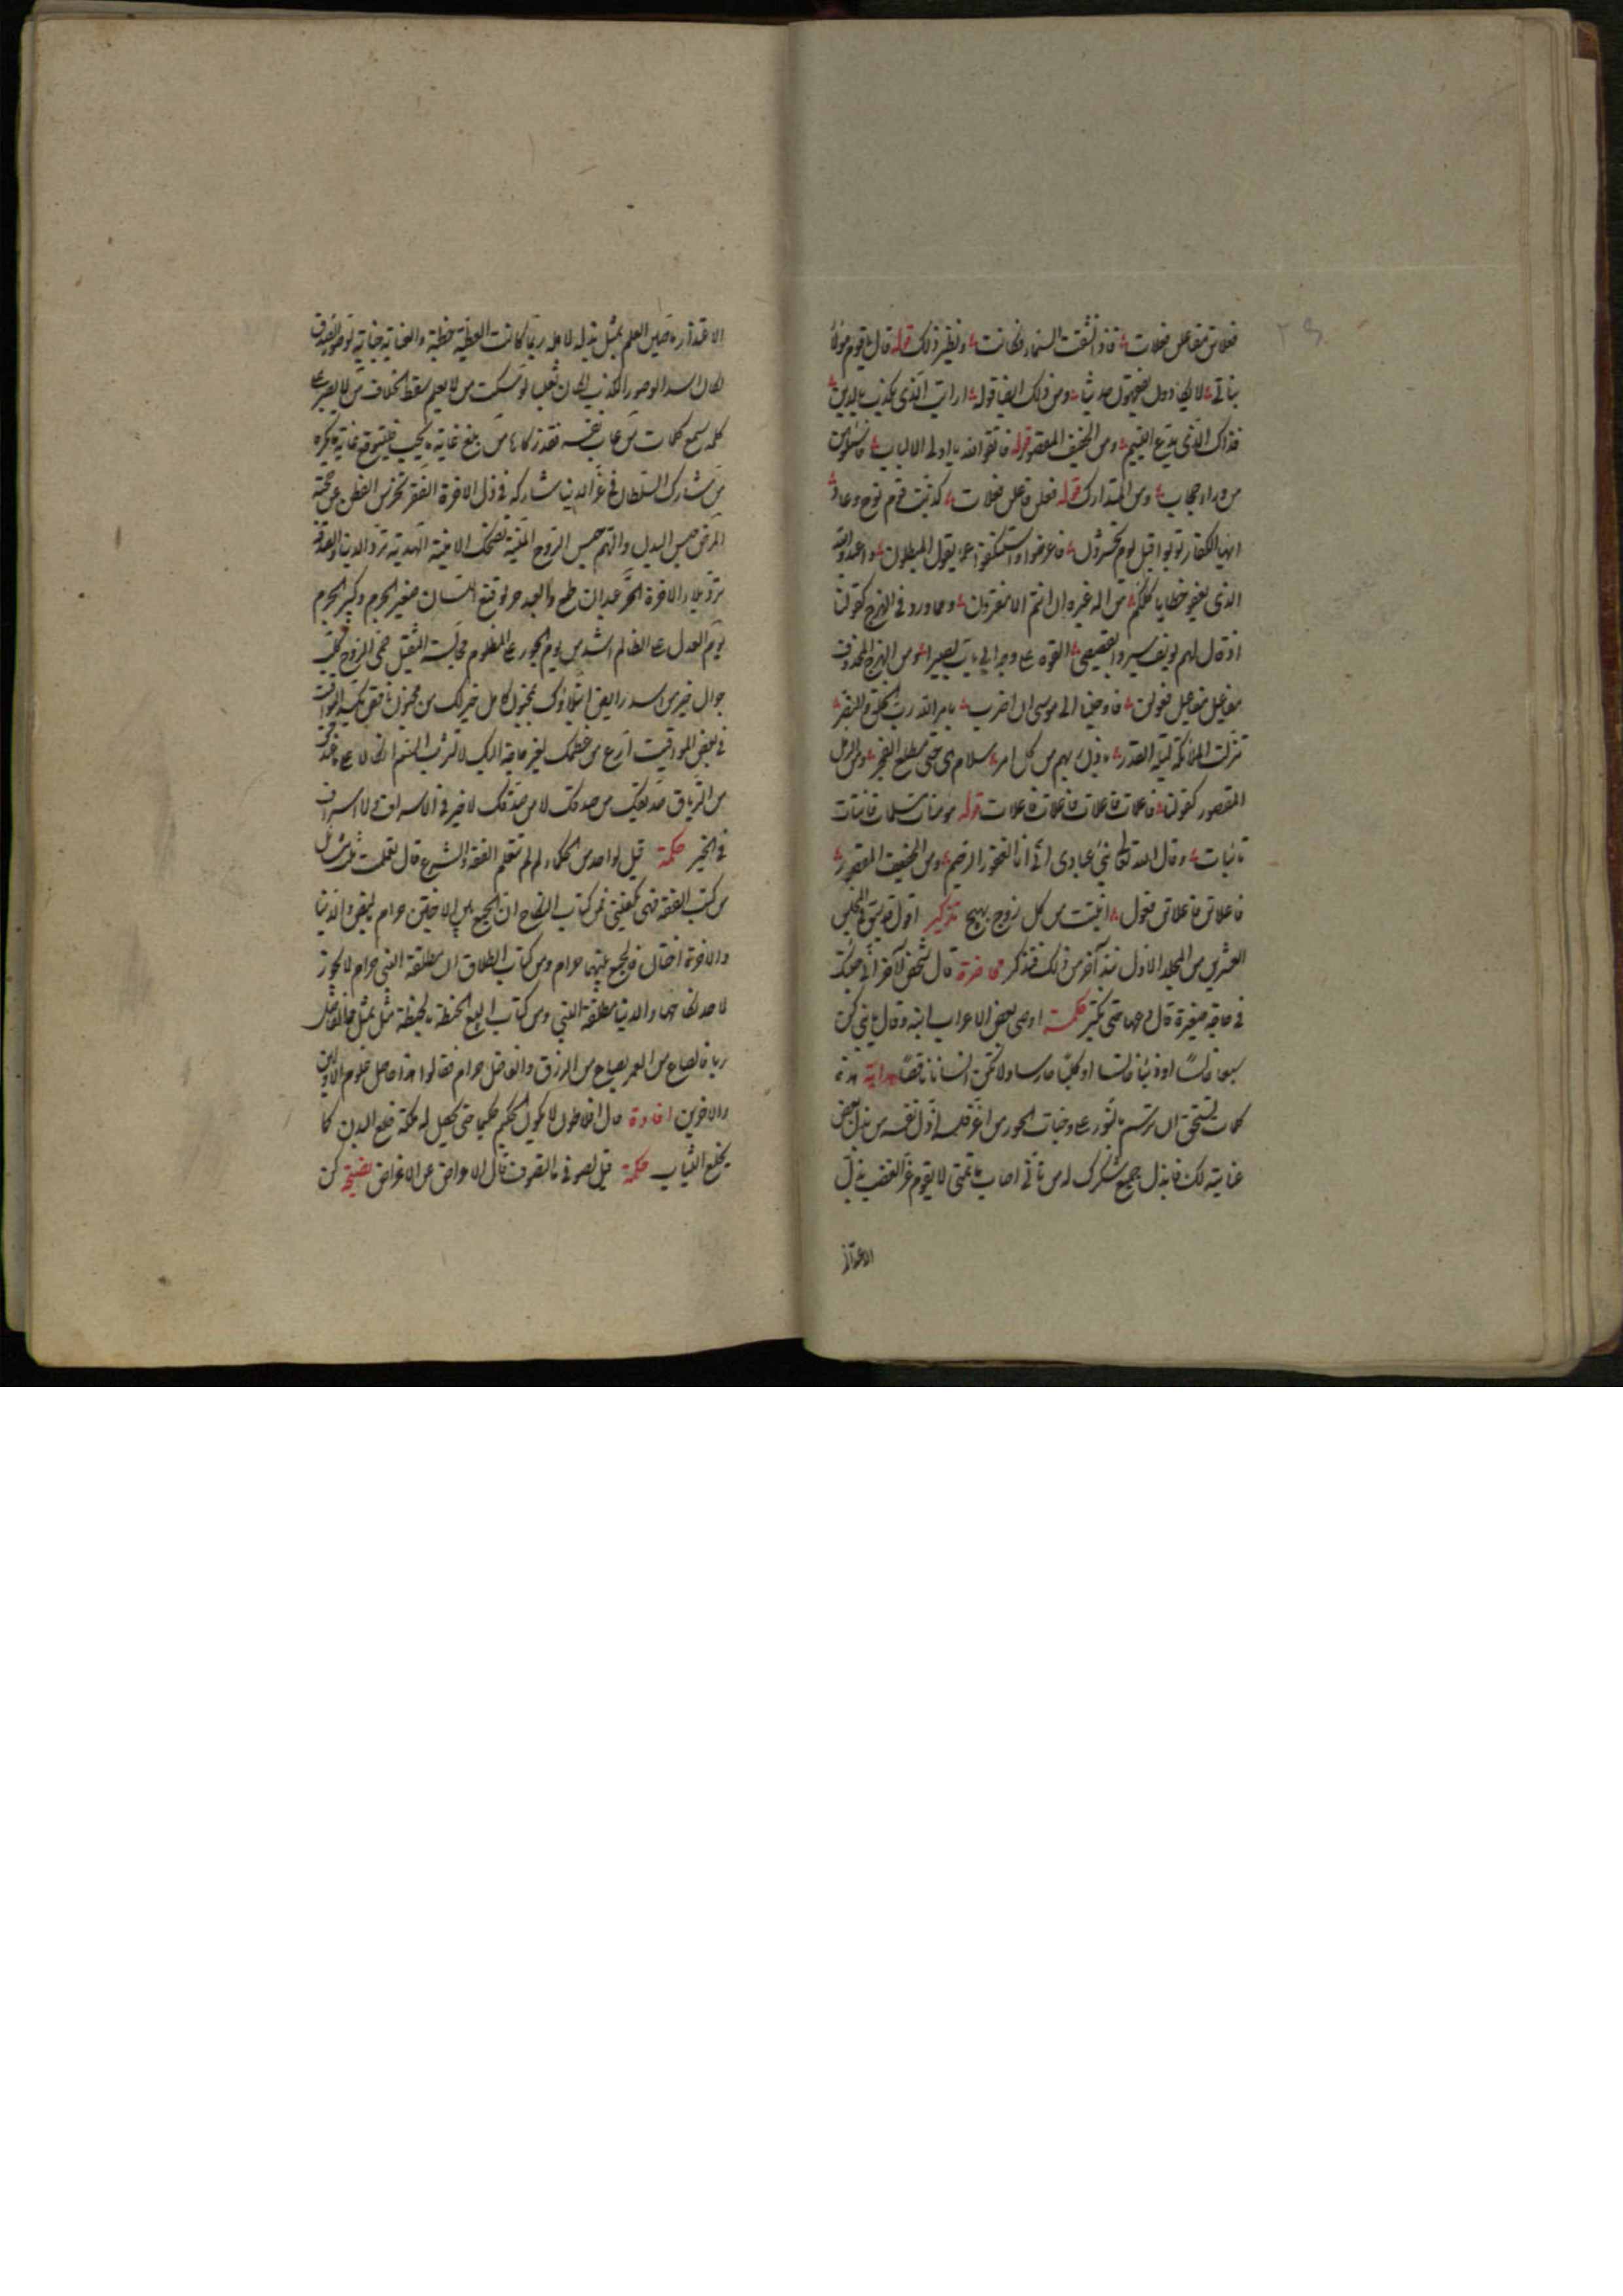 فعلاتن مفاعلن فعلات فاذا انشقت السماء فكانت ونظير ذلك قوله قال يا قوم هؤلاء
بناتى لا يكادون يفقهون حديثا ومن ذلك ايضا قوله ارايت الذى يكذب بالدين
فذاك الذى يدع اليتيم ومن الخفيف المقصور قوله فاتقوا الله يا اولى الالباب فاسئلوهن
من وراء حجاب ومن المتدارك قوله فعلن فاعلن فعلات كذبت قوم نوح وعاد
ايها الكفار توبوا قبل يوم تحشرون فاعرضوا واستنكفوا عما يقول المبطلون واعبدوا الله
الذى يغفر خطاياكم لكم من اله غيره ان انتم الا مفترون ومما ورد فى الهزج كقولنا
اذ قال لهم يوسف سيروا بقميصى القوه على وجه ابى يات بصيرا ومن الهزج المحذوف
مفاعيل مفاعيل فعولن فاوحينا الى موسى ان اضرب بامر الله رب الخلق
تنزلت الملائكة ليلة القدر باذن ربهم من كل امر سلام هى حتى مطلع الفجر ومن الرمل
المقصور كقولنا فاعلات فاعلات فاعلات فاعلات قوله مومنات مسلمات قانتات
تائبات وقال الله تعالى نبئ عبادى انى انا الغفور الرحيم ومن الخفيف المقصور
فاعلاتن فاعلاتن فعول انبتت من كل زوج بهيج تذكير اقول قد سبق فى المجلس
العشرين من المجلد الاول نبذ آخر من ذلك فتذكر محاضرة قال شخص لآخر انى جئتك
فى حاجة صغيرة قال دعها حتى تكبر حكمة اوصى بعض الاعراب ابنه وقال يا بنى كن
سبعا خالسا او ذئبا خانسا او كلبا حارسا ولا تكن انسانا ناقصا هداية هذه
كلمات تستحق ان ترتسم بالنور على وجنات الحور من اعز فلسه اذل نفسه من بذل بعض
عنايته لك فابذل جميع شكرك له من تانى اصاب ما تمنى لا يقوم عز الغضب بذل
الاعتذار
الاعتذار ما صين العلم بمثل بذله لاهله ربما كانت العطية خطية والعناية جناية لو صور الصدق
لكان اسدا ولو صور الكذب لكان ثعلبا لو سكت من لا يعلم سقط الخلاف من لا يصبر على
كلمة سمع كلمات من عاب نفسه فقد زكاها من بلغ غاية ما يحب فليتوقع غاية ما يكره
من شارك السلطان فى عز الدنيا شاركه فى ذل الاخرة الفقر يخرس الفطن عن حجته
المرض حبس البدن والهم حبس الروح المنية تضحك الامنية الهدية ترد الدنيا والصدقة
ترد بلاء الاخرة الحر عبد ان طمع والعبد حر لو قنع اللسان صغير الجرم وكبير الجرم
يوم العدل على الظالم اشد من يوم الجور على المظلوم مجالسة الثقيل حمى الروح كلب
جوال خير من اسد رابض ابتلاؤك بمجنون كامل خير لك من مجنون ناقص
فى بعض المواقيت ارع من عظمك لغير حاجة اليك لا تشرب السم اتكالا على ما عندك
من الترياق صديقك من صدقك لا من صدقك لا خير فى الاسراف ولا اسراف
فى الخير حكمة قيل لواحد من الحكماء لم لم تتعلم الفقه والشرع قال تعلمت ثلث مسائل
من كتب الفقه فهى تكفينى فمن كتاب النكاح ان الجمع بين الاختين حرام والدنيا
والاخرة اختان فالجمع بينهما حرام ومن كتاب الطلاق ان مطلقة النبى حرام لا يجوز
لاحد نكاحها والدنيا مطلقة النبى ومن كتاب البيع الحنطة بالحنطة مثل بمثل والفاضل
ربا فالصاع من العمر بصاع من الرزق والفاضل حرام فقالوا هذا حاصل علوم الاولين
والاخرين افادة قال افلاطون لا يكون الحكيم حكيما حتى يحصل له ملكة خلع البدن كما
يخلع الثياب حكمة قيل لصوفى ما التصوف قال الاعراض عن الاعراض نصيحة كن